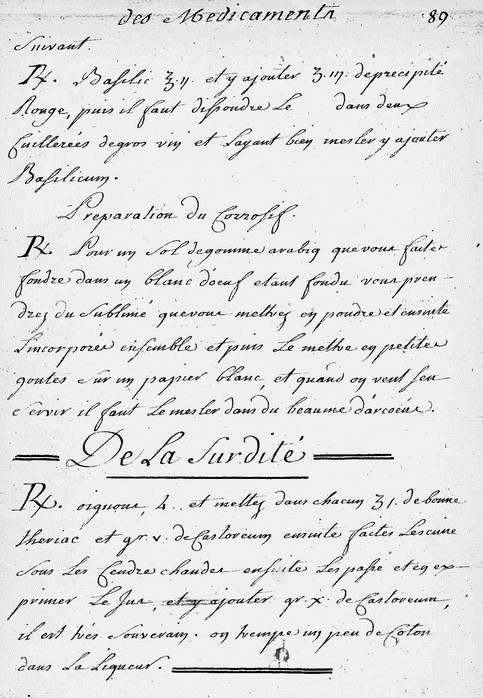 des Medicaments 89
Suivant.
℞. Basilic ʒ.ij. et y ajouter ʒ.iij. de precipité
Rouge, puis il faut dissoudre Le dans deux
Cuillerées de gros vin et Layant bien mesler y ajouter
Basilicum.
Preparation du Corrosif.
℞. Pour un Sol de gomme arabiq que vous faites
fondre dans un blanc d'oeuf etant fondu vous pren-
drez du Sublimé que vous mettrez en poudre et ensuite
Lincorporés ensemble et puis Le mettre en petites
goutes Sur un papier blanc, et quand on veut sen
servir il faut Le mesler dans du beaume d'arcœus.
De La Surdité
℞. oignons, 4. et mettez dans chacun ʒ1. de bonne
theriac et gr. v. de Castoreum ensuite faites Les cuire
Sous Les Cendre chaudes ensuite Les passé et en ex-
primer Le Jus et y ajouter gr. x. de Castoreum,
il est trés Souverain. on trempe un peu de Coton
dans La Liqueur.